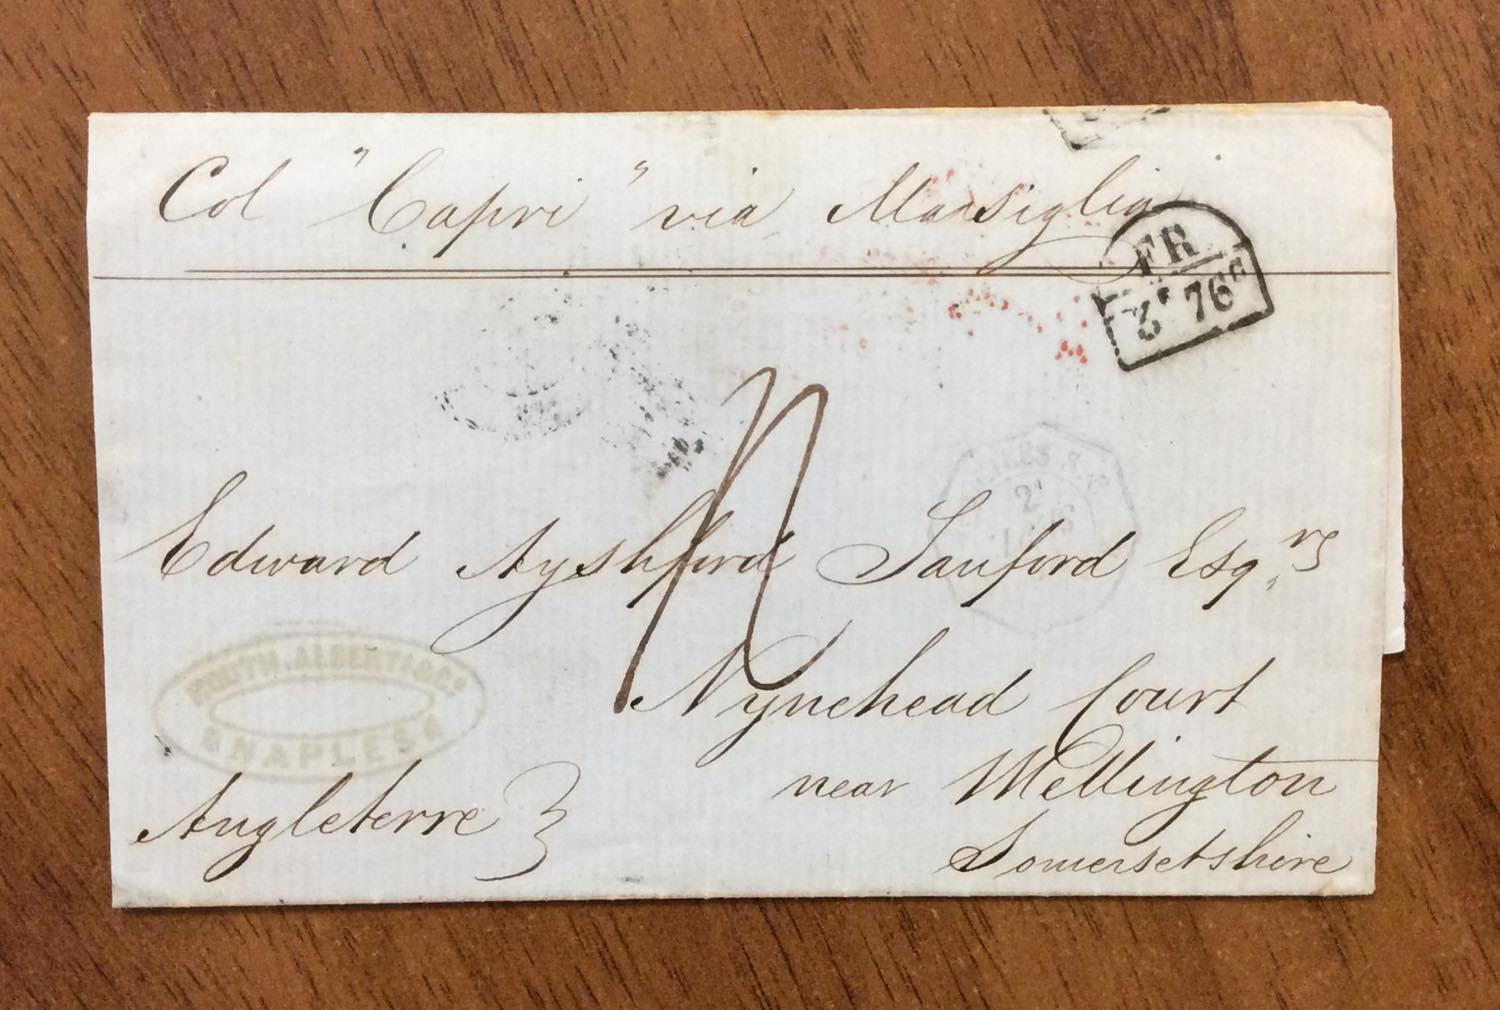 Col "Capri" via Marsiglia
FR
3f 76c
Edward Ayshford Sanford Esqrs
Nynehead Court
near Wellington
Somersetshire
ALBERTI & Co
NAPLES
Angleterre